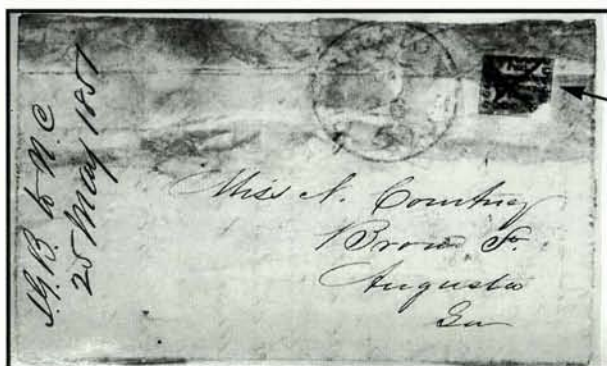 J.G.B. to N.C
25 May 1851
Miss N. Courtney
Broad St.
Augusta
Ga